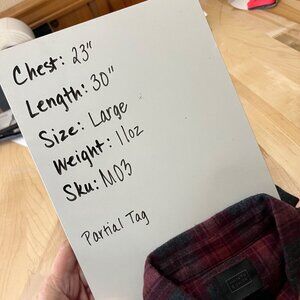 Chest: 23"
Length: 30"
Size: Large
Weight: 11oz
Sku: M03
Partial Tag